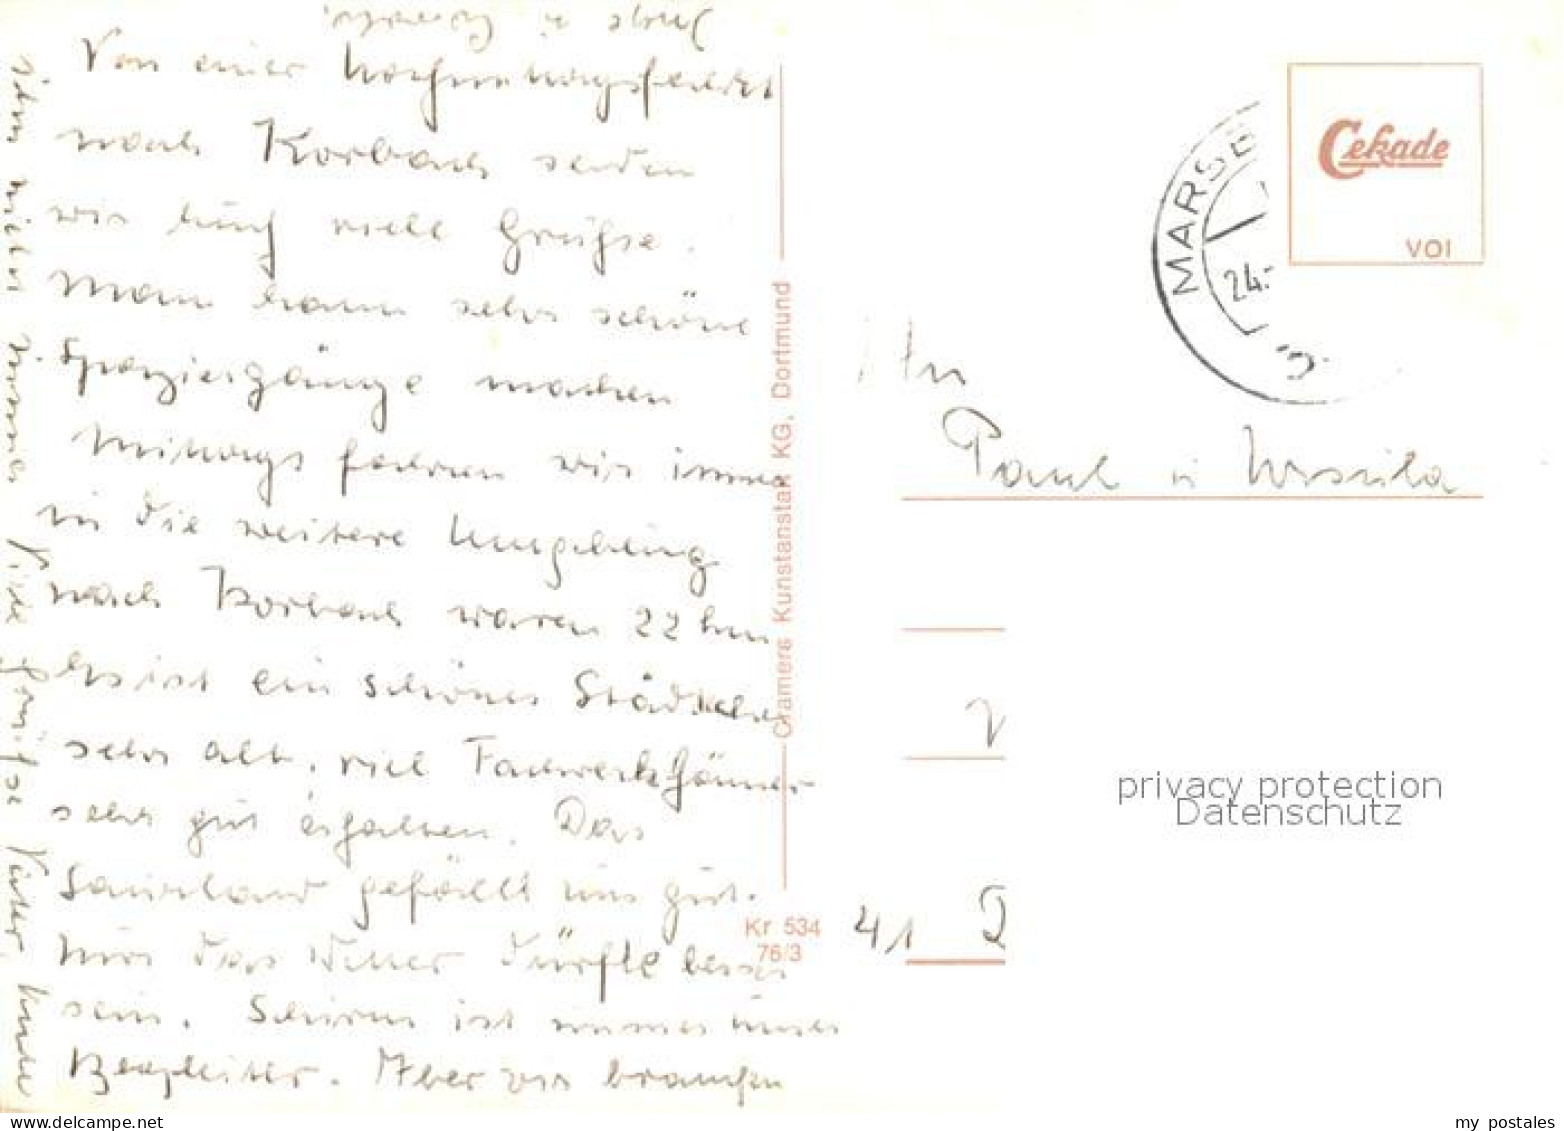 Von einer Nachmittagsfahrt
nach Korbach senden
wir Euch viele Grüße.
Man kann sehr schöne
Spaziergänge machen
Mittags fahren wir immer
in die weitere Umgebung
nach Korbach waren 22 km
Es ist ein schönes Städtchen
sehr alt, viel Fachwerkhäuser
sehr gut erhalten. Das
Sauerland gefällt uns gut.
Nur das Wetter dürfte besser
sein. Schirm ist immer unser
Begleiter. Aber wir brauchen
ihn nicht immer Viele Grüße
Cramers Kunstanstalt KG, Dortmund
Kr 534
76/3
Cekade
VOI
MARSB
24.
An
Paul u Ursula
41 D
privacy protection
Datenschutz
delcampe.net
my_postales